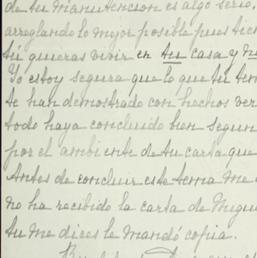 de su manutencion es algo serio,
arreglando lo mejor posible pues
tú quieras vivir en tu casa y
Yo estoy segura que lo que tu
te han demostrado con hechos
todo haya concluido bien segun
por el ambiente de tu carta que
Antes de concluir este tema me
no ha recibido la carta de Migue
tu me dices le mandó copia.